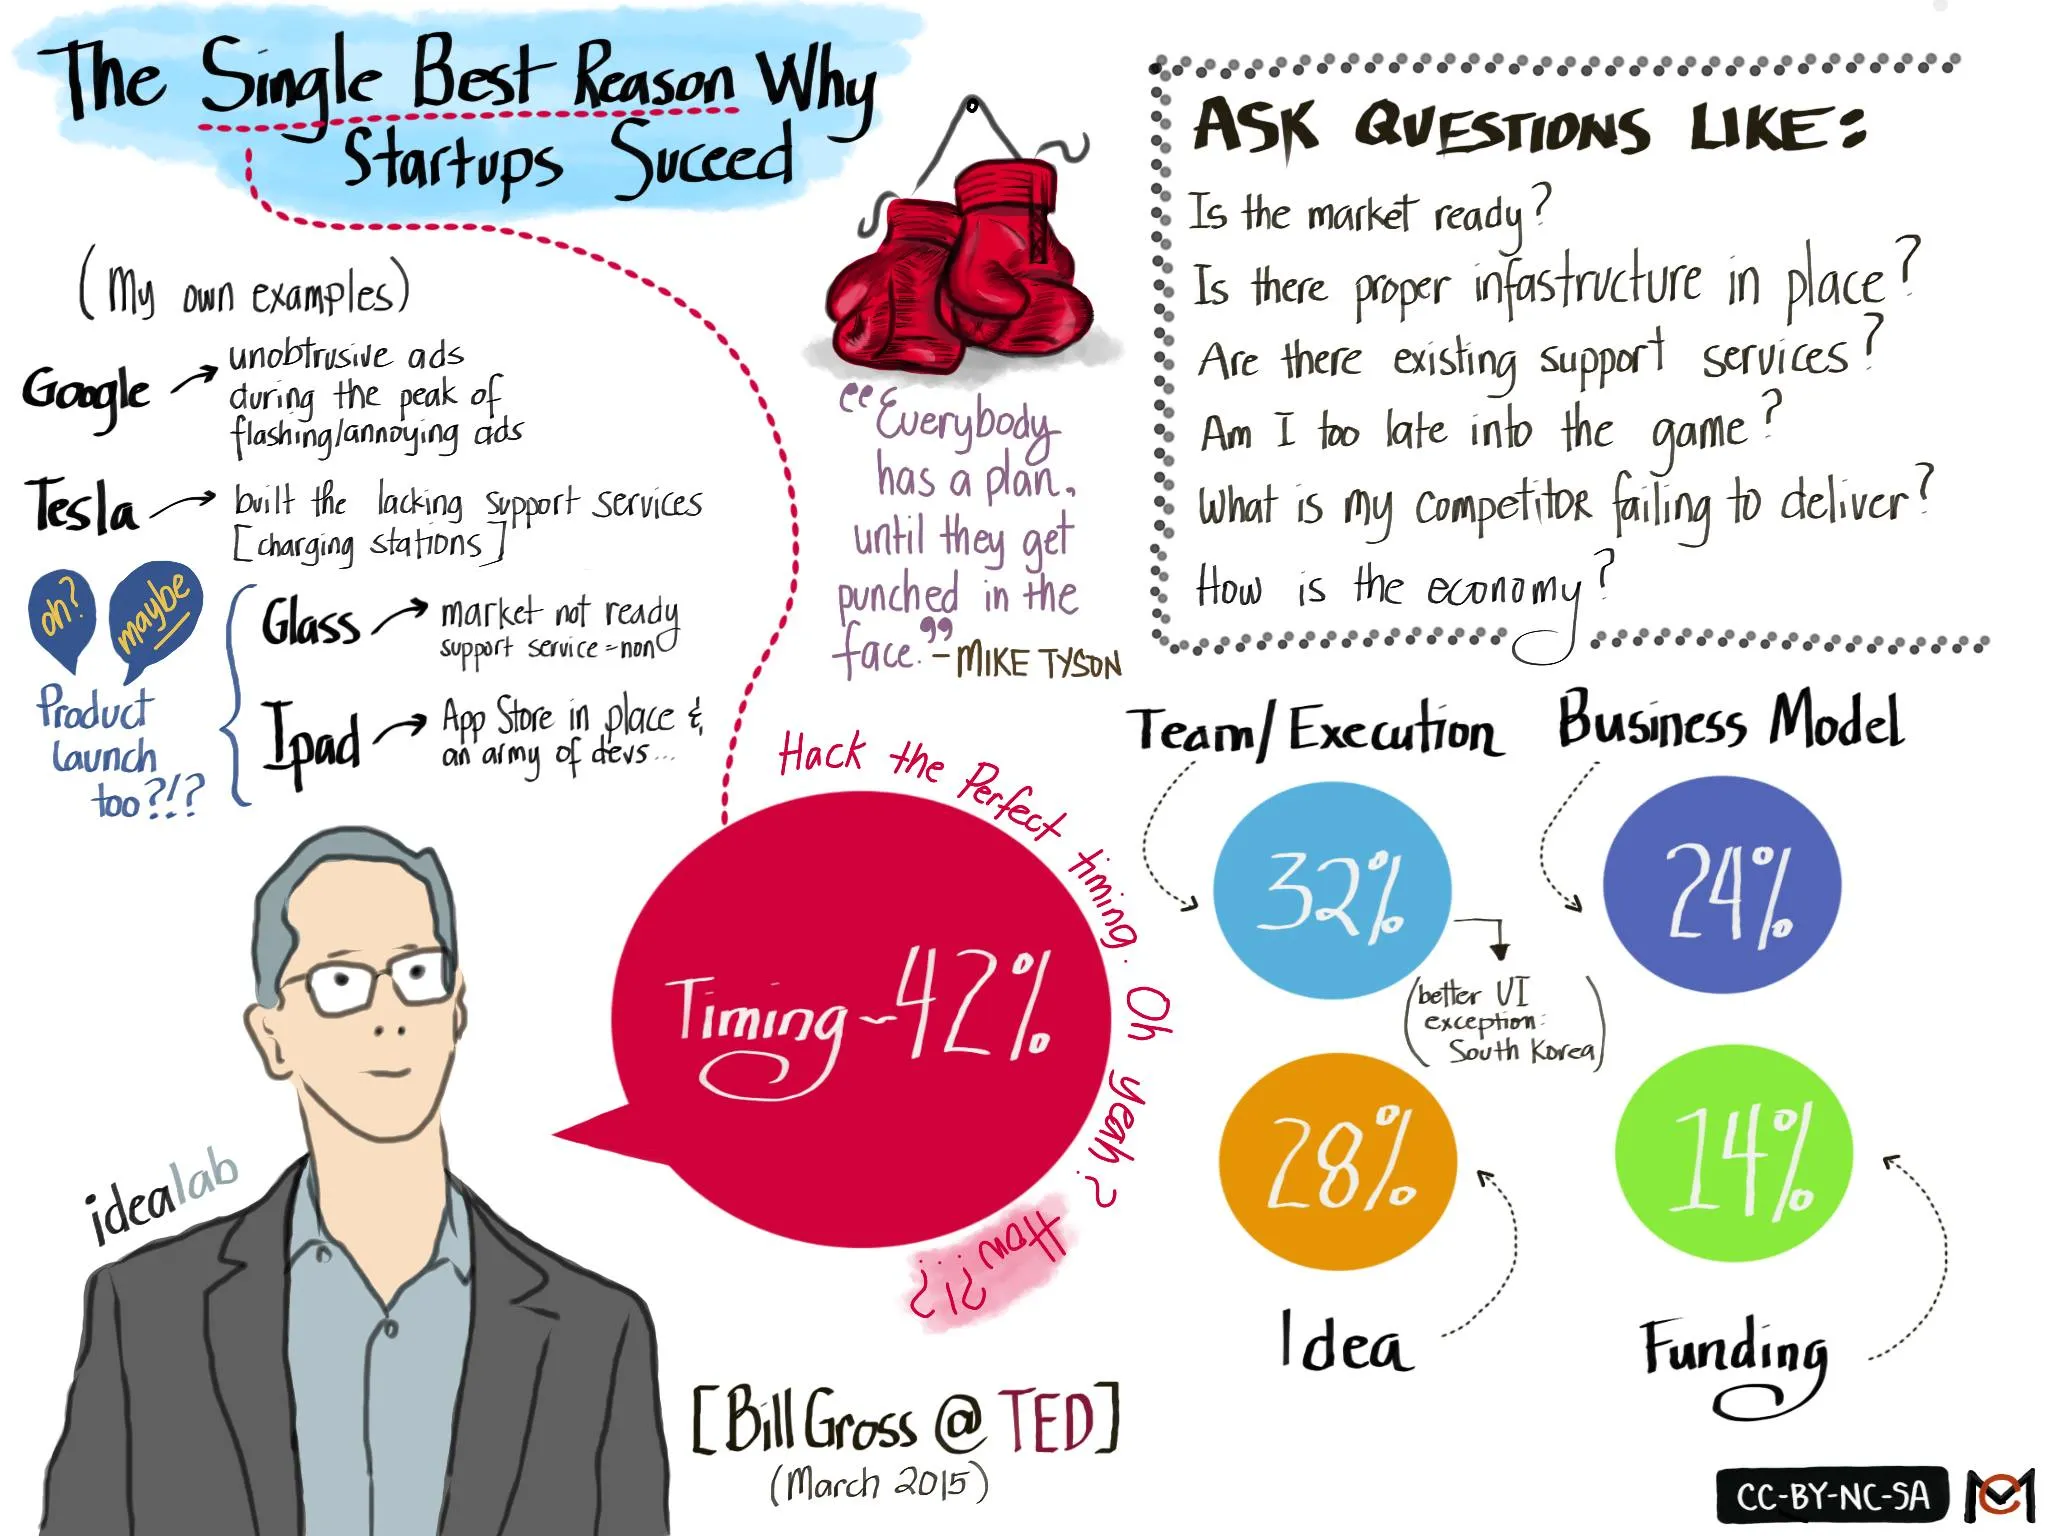 The Single Best Reason Why
Startups Suceed
(My own examples)
Google
unobtrusive ads
during the peak of
flashing/annoying ads
Tesla
built the lacking support services
[charging stations]
oh?
maybe
Product
launch
too?!?
Glass
market not ready
support service = non
Ipad
App Store in place &
an army of devs...
“Everybody
has a plan,
until they get
punched in the
face.” - MIKE TYSON
ASK QUESTIONS LIKE:
Is the market ready?
Is there proper infastructure in place?
Are there existing support services?
Am I too late into the game?
What is my competitor failing to deliver?
How is the economy?
Hack the Perfect timing. Oh yeah?
How?!?
Timing ~ 42%
Team/Execution
32%
(better UI
exception:
South Korea)
Business Model
24%
28%
Idea
14%
Funding
idealab
[Bill Gross @ TED]
(March 2015)
CC-BY-NC-SA